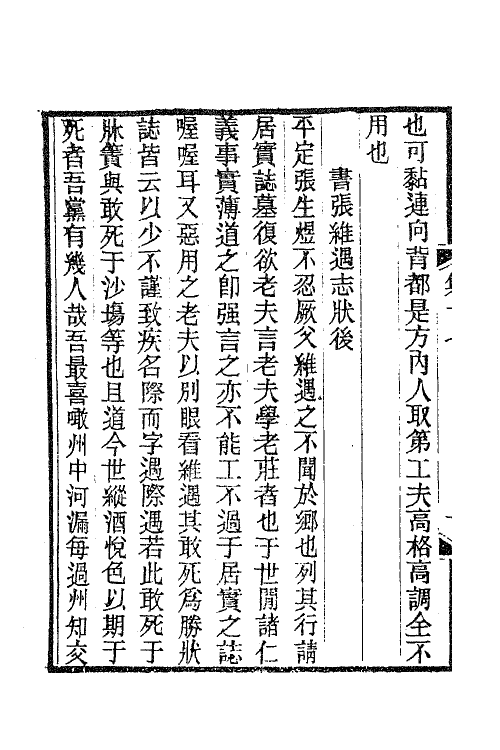 也可黏連向背都是方內人取第工夫高格高調全不
用也
書張維遇志狀後
平定張生煜不忍厥父維遇之不聞於鄉也列其行請
居實誌墓復欲老夫言老夫學老莊者也于世閒諸仁
義事實薄道之卽强言之亦不能工不過于居實之誌
喔喔耳又惡用之老夫以別眼看維遇其敢死爲勝狀
誌皆云以少不謹致疾名際而字遇際遇若此敢死于
牀簀與敢死于沙場等也且道今世縱酒悅色以期于
死者吾黨有幾人哉吾最喜噉州中河漏每過州知交